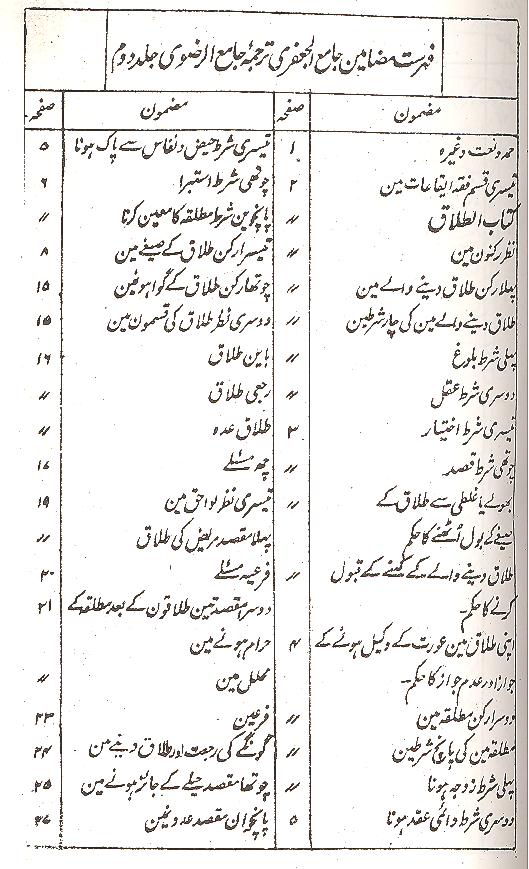 فہرست مضامین جامع الجعفری ترجمۂ جامع الرضوی جلد دوم
مضمون صفحہ مضمون صفحہ
حمد و نعت وغیرہ ۱
تیسری قسم فقہ ایقاعات مین ۲
کتاب الطلاق 〃
نظر رکنون مین 〃
پہلا رکن طلاق دینے والے مین 〃
طلاق دینے والے مین کی چار شرطین 〃
پہلی شرط بلوغ 〃
دوسری شرط عقل 〃
تیسری شرط اختیار ۳
چوتھی شرط قصد 〃
بھولے یا غلطی سے طلاق کے 〃
صیغے کے بول اُٹھنے کا حکم
طلاق دینے والے کے کہنے کے قبول 〃
کرنے کا حکم۔
اپنی طلاق مین عورت کے وکیل ہونے کے ۴
جواز اور عدم جواز کا حکم۔
دوسرا رکن مطلقہ مین 〃
مطلقہ مین کی پانچ شرطین 〃
پہلی شرط زوجہ ہونا 〃
دوسری شرط دائمی عقد ہونا ۵
تیسری شرط حیض و نفاس سے پاک ہونا ۵
چوتھی شرط استبرا ۶
پانچوین شرط مطلقہ کا معین کرنا 〃
تیسرا رکن طلاق کے صیغے مین ۸
چوتھا رکن طلاق کے گواہونمین ۱۵
دوسری نظر طلاق کی قسمون مین ۱۵
باین طلاق ۱۶
رجعی طلاق 〃
طلاق عدہ 〃
چھ مسئلے ۱۷
تیسری نظر لواحق مین ۱۹
پہلا مقصد مریض کی طلاق 〃
فرعیہ مسئلے ۲۰
دوسرا مقصد تین طلاقون کے بعد مطلقہ کے ۲۱
حرام ہونے مین
محلل مین 〃
فرعین ۲۳
گونگے کی رجعت اور طلاق دینے مین ۲۴
چوتھا مقصد حیلے کے جائز ہونے مین ۲۵
پانچوان مقصد عدونمین ۲۶